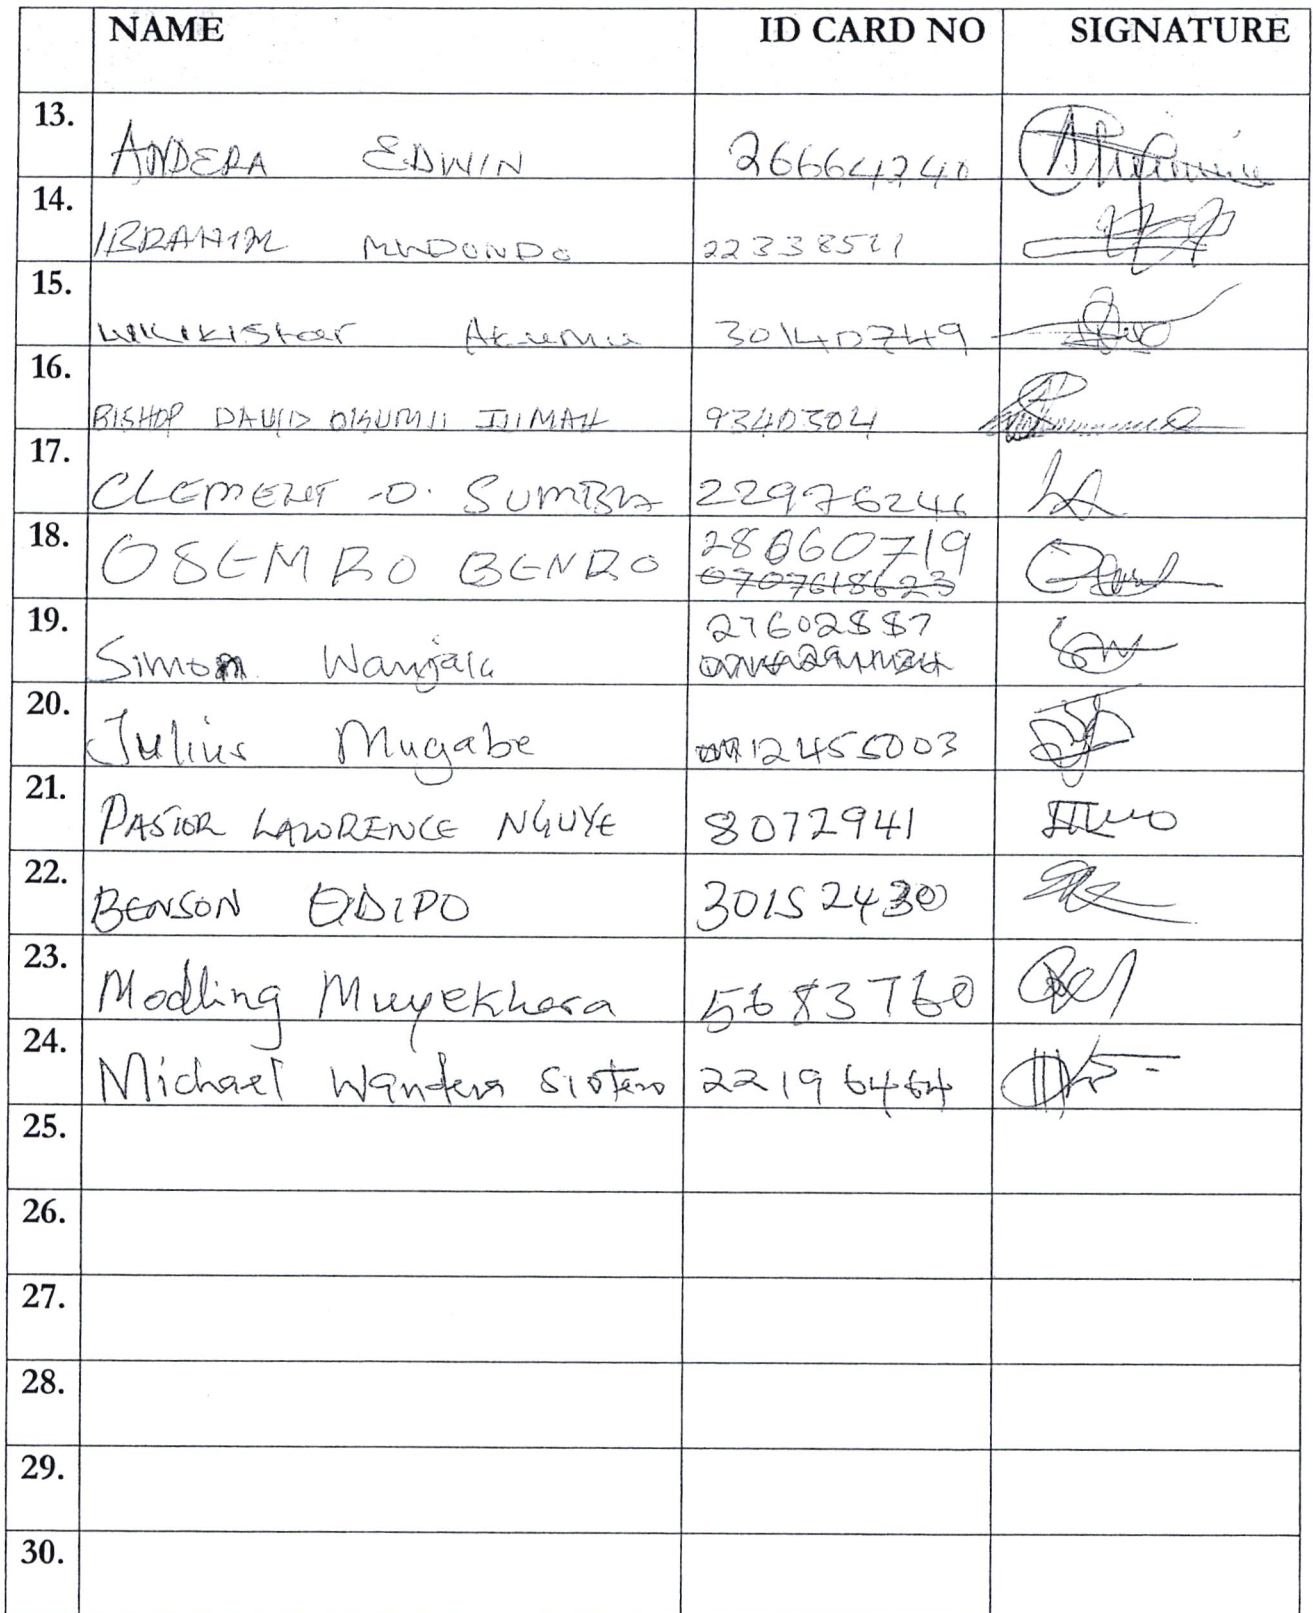 NAME ID CARD NO SIGNATURE
13. ANDERA EDWIN 266642240
14. IBRAHIM MUDONDO 22338511
15. Wikikister Akumu 30140749
16. BISHOP DAVID 9340304
17. CLEMENT O. SUMBA 22976246
18. OSEMRO BENRO 28060719
0707618623
19. Simon Wanjala 27602887
20. Julius Mugabe 12455003
21. PASTOR LAWRENCE NGUYE 8072941
22. BENSON ODIPO 30152430
23. Modling Muyekhera 5683760
24. Michael Wandera 22196464
25.
26.
27.
28.
29.
30.